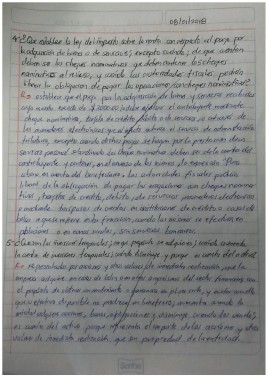 08/01/2018
4-¿Que establece la ley del impuesto sobre la renta con respecto al pago por
la adquisición de bienes o de servicios, excepto cuando, de que cuenta
deben ser los cheques nominativos, que deben contener los cheques
nominativos al reverso, y cuando las autoridades fiscales podrán
liberar la obligación de pagar las operaciones con cheques nominativos?
R= establece que el pago por la adquisición de bienes y servicios recibidos
cuyo monto exceda de $2000.00 deben efectuar el contribuyente mediante
cheque nominativo, tarjeta de crédito, débito o de servicios, o a través de
los monederos electrónicos que al efecto autorice el servicio de administración
tributaria, excepto cuando dichos pagos se hagan por la prestación de un
servicio personal subordinado. Los cheques nominativos deben ser de la cuenta del
contribuyente y contener, en el anverso de los mismos, la expresión "Para
abono en cuenta del beneficiario". Las autoridades fiscales podrán
liberar de la obligación de pagar las erogaciones con cheques nomina-
tivos, tarjetas de crédito, débito, de servicios, monederos electrónicos
o mediante traspasos de cuentas en instituciones de crédito o casas de
bolsa a que se refiere esta fracción, cuando las mismas se efectúen en
poblaciones o en zonas rurales, sin servicios bancarios.
5-¿Que son las inversiones temporales, porque propósito se adquieren, cuándo aumenta
la cuenta de inversiones temporales, cuándo disminuye y porque es cuenta del activo?
R= representada por acciones y otros valores de inmediata realización, que la
empresa adquiere
propósito de obtener un rendimiento o ganancia en plazo corto, y evitar con ello
que su efectivo disponible no produzca un beneficio, aumenta cuando la
entidad adquiere acciones, bonos, obligaciones y disminuye cuando las vende,
es cuenta del activo porque representa el importe de las acciones y otros
valores de inmediata realización que son propiedad de la entidad.
Scribe